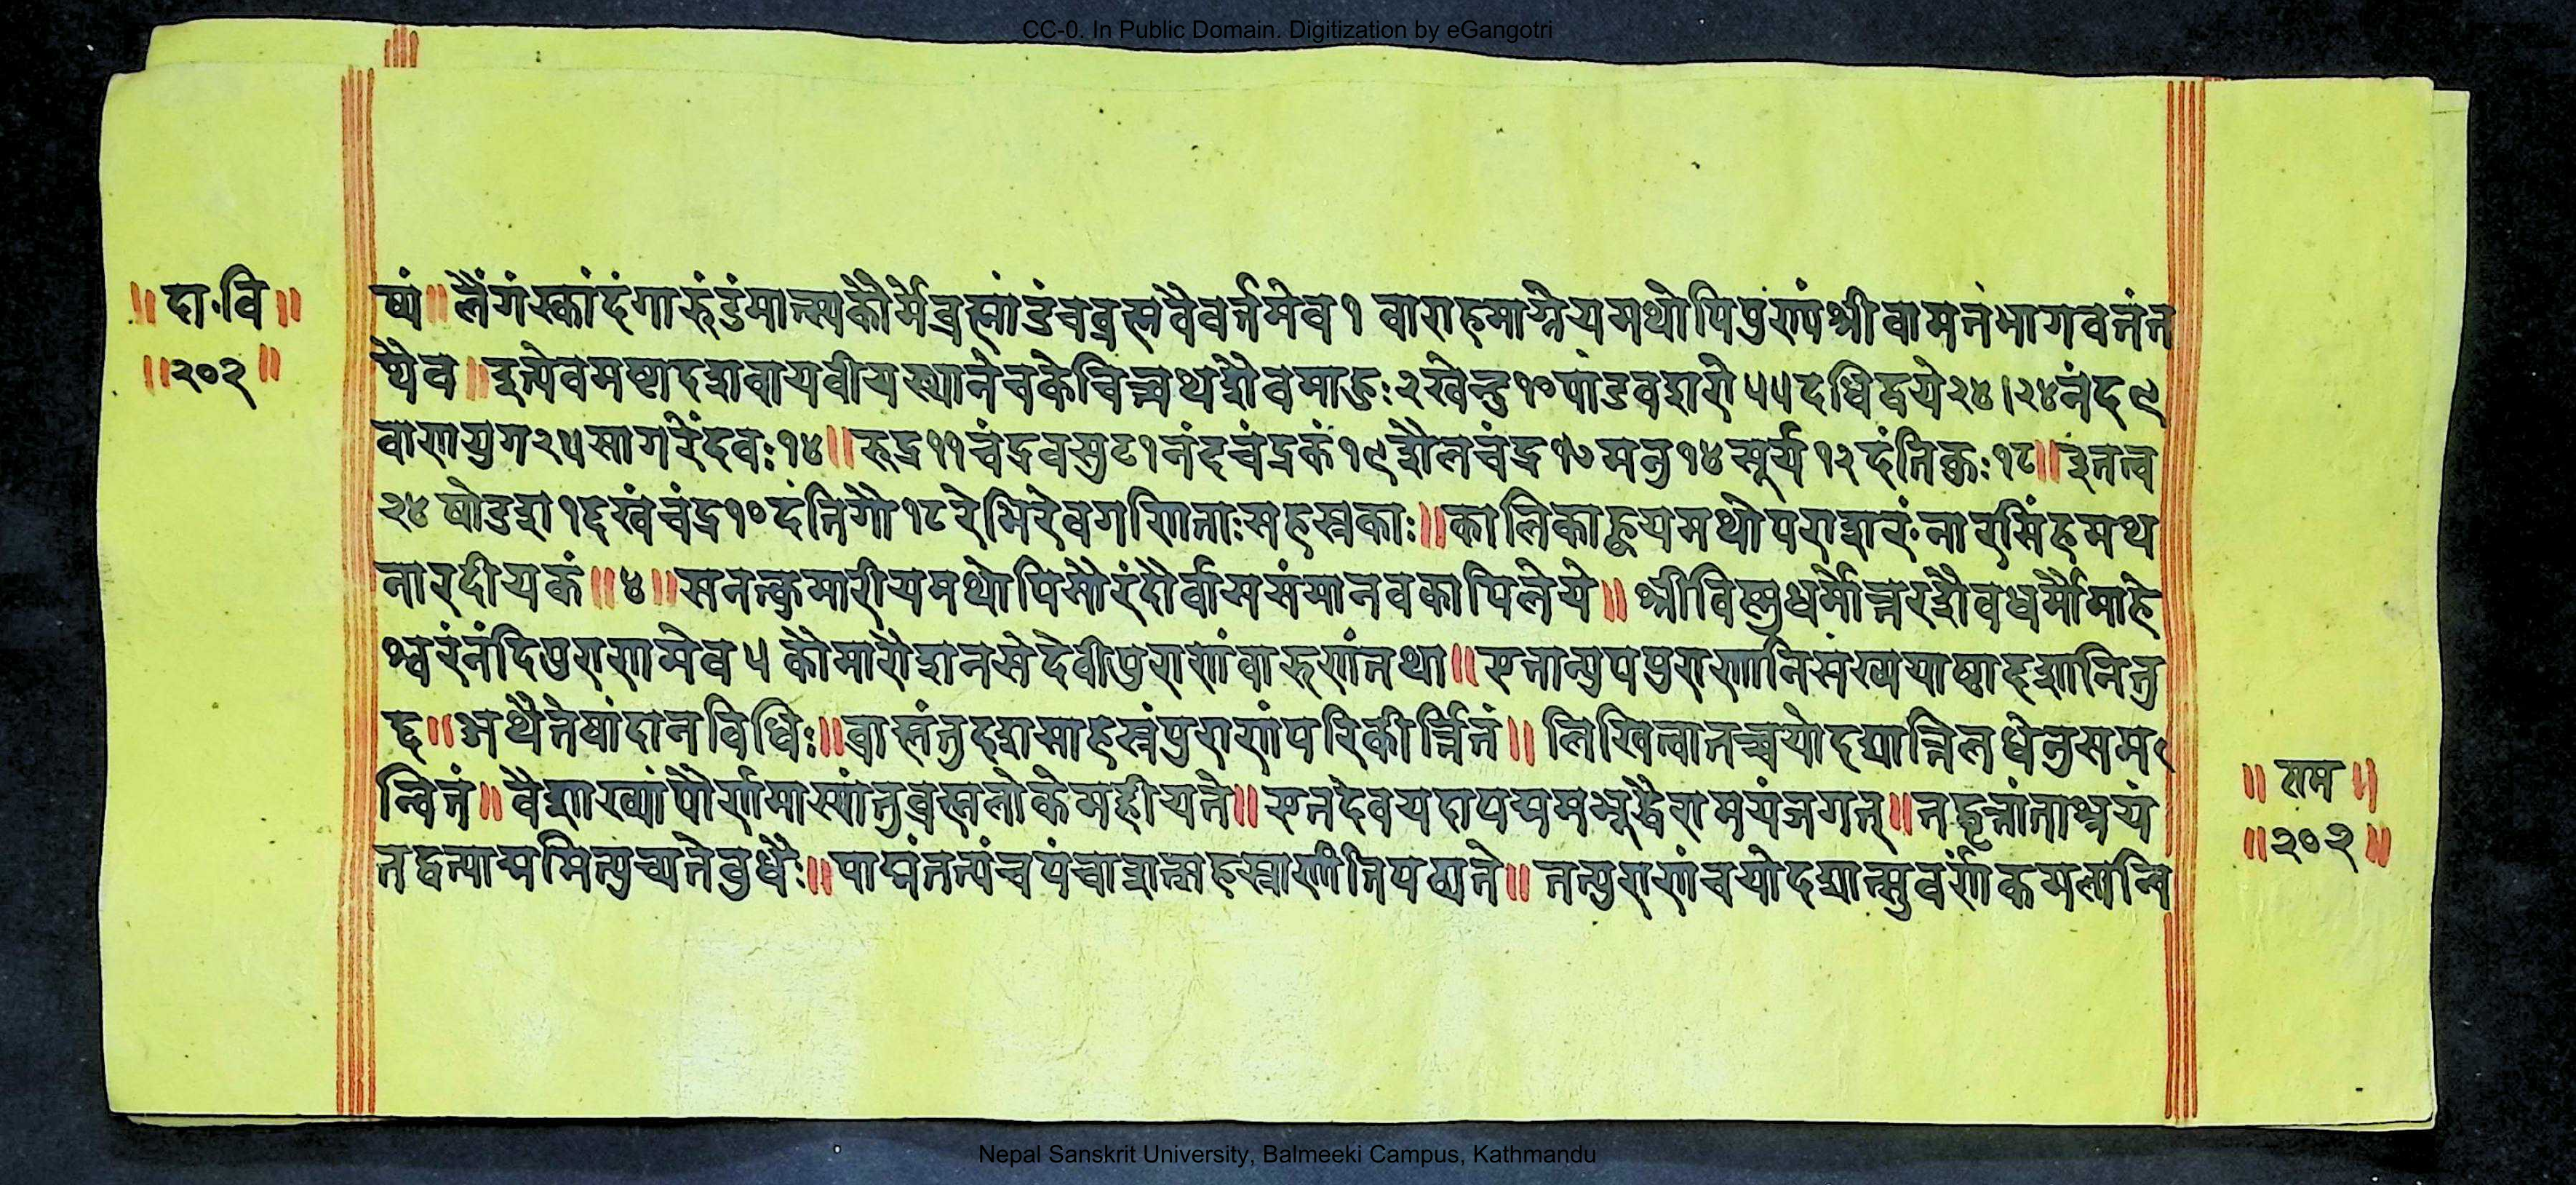 CC-0. In Public Domain. Digitization by eGangotri
॥ दा॰वि ॥
॥२०२॥
ष्यं॥लैंगंस्कांदंगारुडंमात्स्यकौर्मेब्रह्मांडंचब्रह्मवैवर्त्तमेव१ वाराहमाग्नेयमथोपिपुराणंश्रीवामनंभागवतंत
थैव॥इत्येवमष्टादशवायवीयस्थानेचकेचित्त्वथशैवमाहुः२खेन्दु१०पांडवशरी५५दधिद्वये२४।२४नंद९
वाणयुग२५सागरेंदवः१४॥रुद्र११चंद्रवसु८१नंदचंद्रकं१९शैलचंद्र१७मनु१४सूर्य१२दंतिकुः१८॥इनतत्व
२४षोडश१६खंचंद्र१०दंतिगौ१८रेभिरेवगणिताःसहस्रकाः॥कालिकाह्वयमथोपराशरंनारसिंहमथ
नारदीयकं॥४॥सनत्कुमारीयमथोपिसौरंदौर्वाससंमानवकापिलेये॥श्रीविष्णुधर्मोत्तरशैवधर्मौमाहे
श्वरंनंदिपुराणमेव५ कौमारौशनसेदेवीपुराणंवारुणंतथा॥एतान्युपपुराणानिसंख्ययाष्टादशानितु
६॥अथैतेषांदानविधिः॥ब्राह्मंतुदशसाहस्रंपुराणंपरिकीर्त्तितं॥लिखित्वातच्चयोदद्यात्तिलधेनुसम
न्वितं॥वैशाख्यांपौर्णमास्यांतुब्रह्मलोकेमहीयते॥एतदेवयदापद्ममभूद्धैरामयंजगत्॥तद्वृत्तांताश्रयं
तद्वत्पाद्ममित्युच्यतेबुधैः॥पाद्मंतत्पंचपंचाशत्सहस्राणीतिपठ्यते॥तत्पुराणंचयोदद्यात्सुवर्णकमलान्वि
॥ राम ॥
॥२०२॥
Nepal Sanskrit University, Balmeeki Campus, Kathmandu